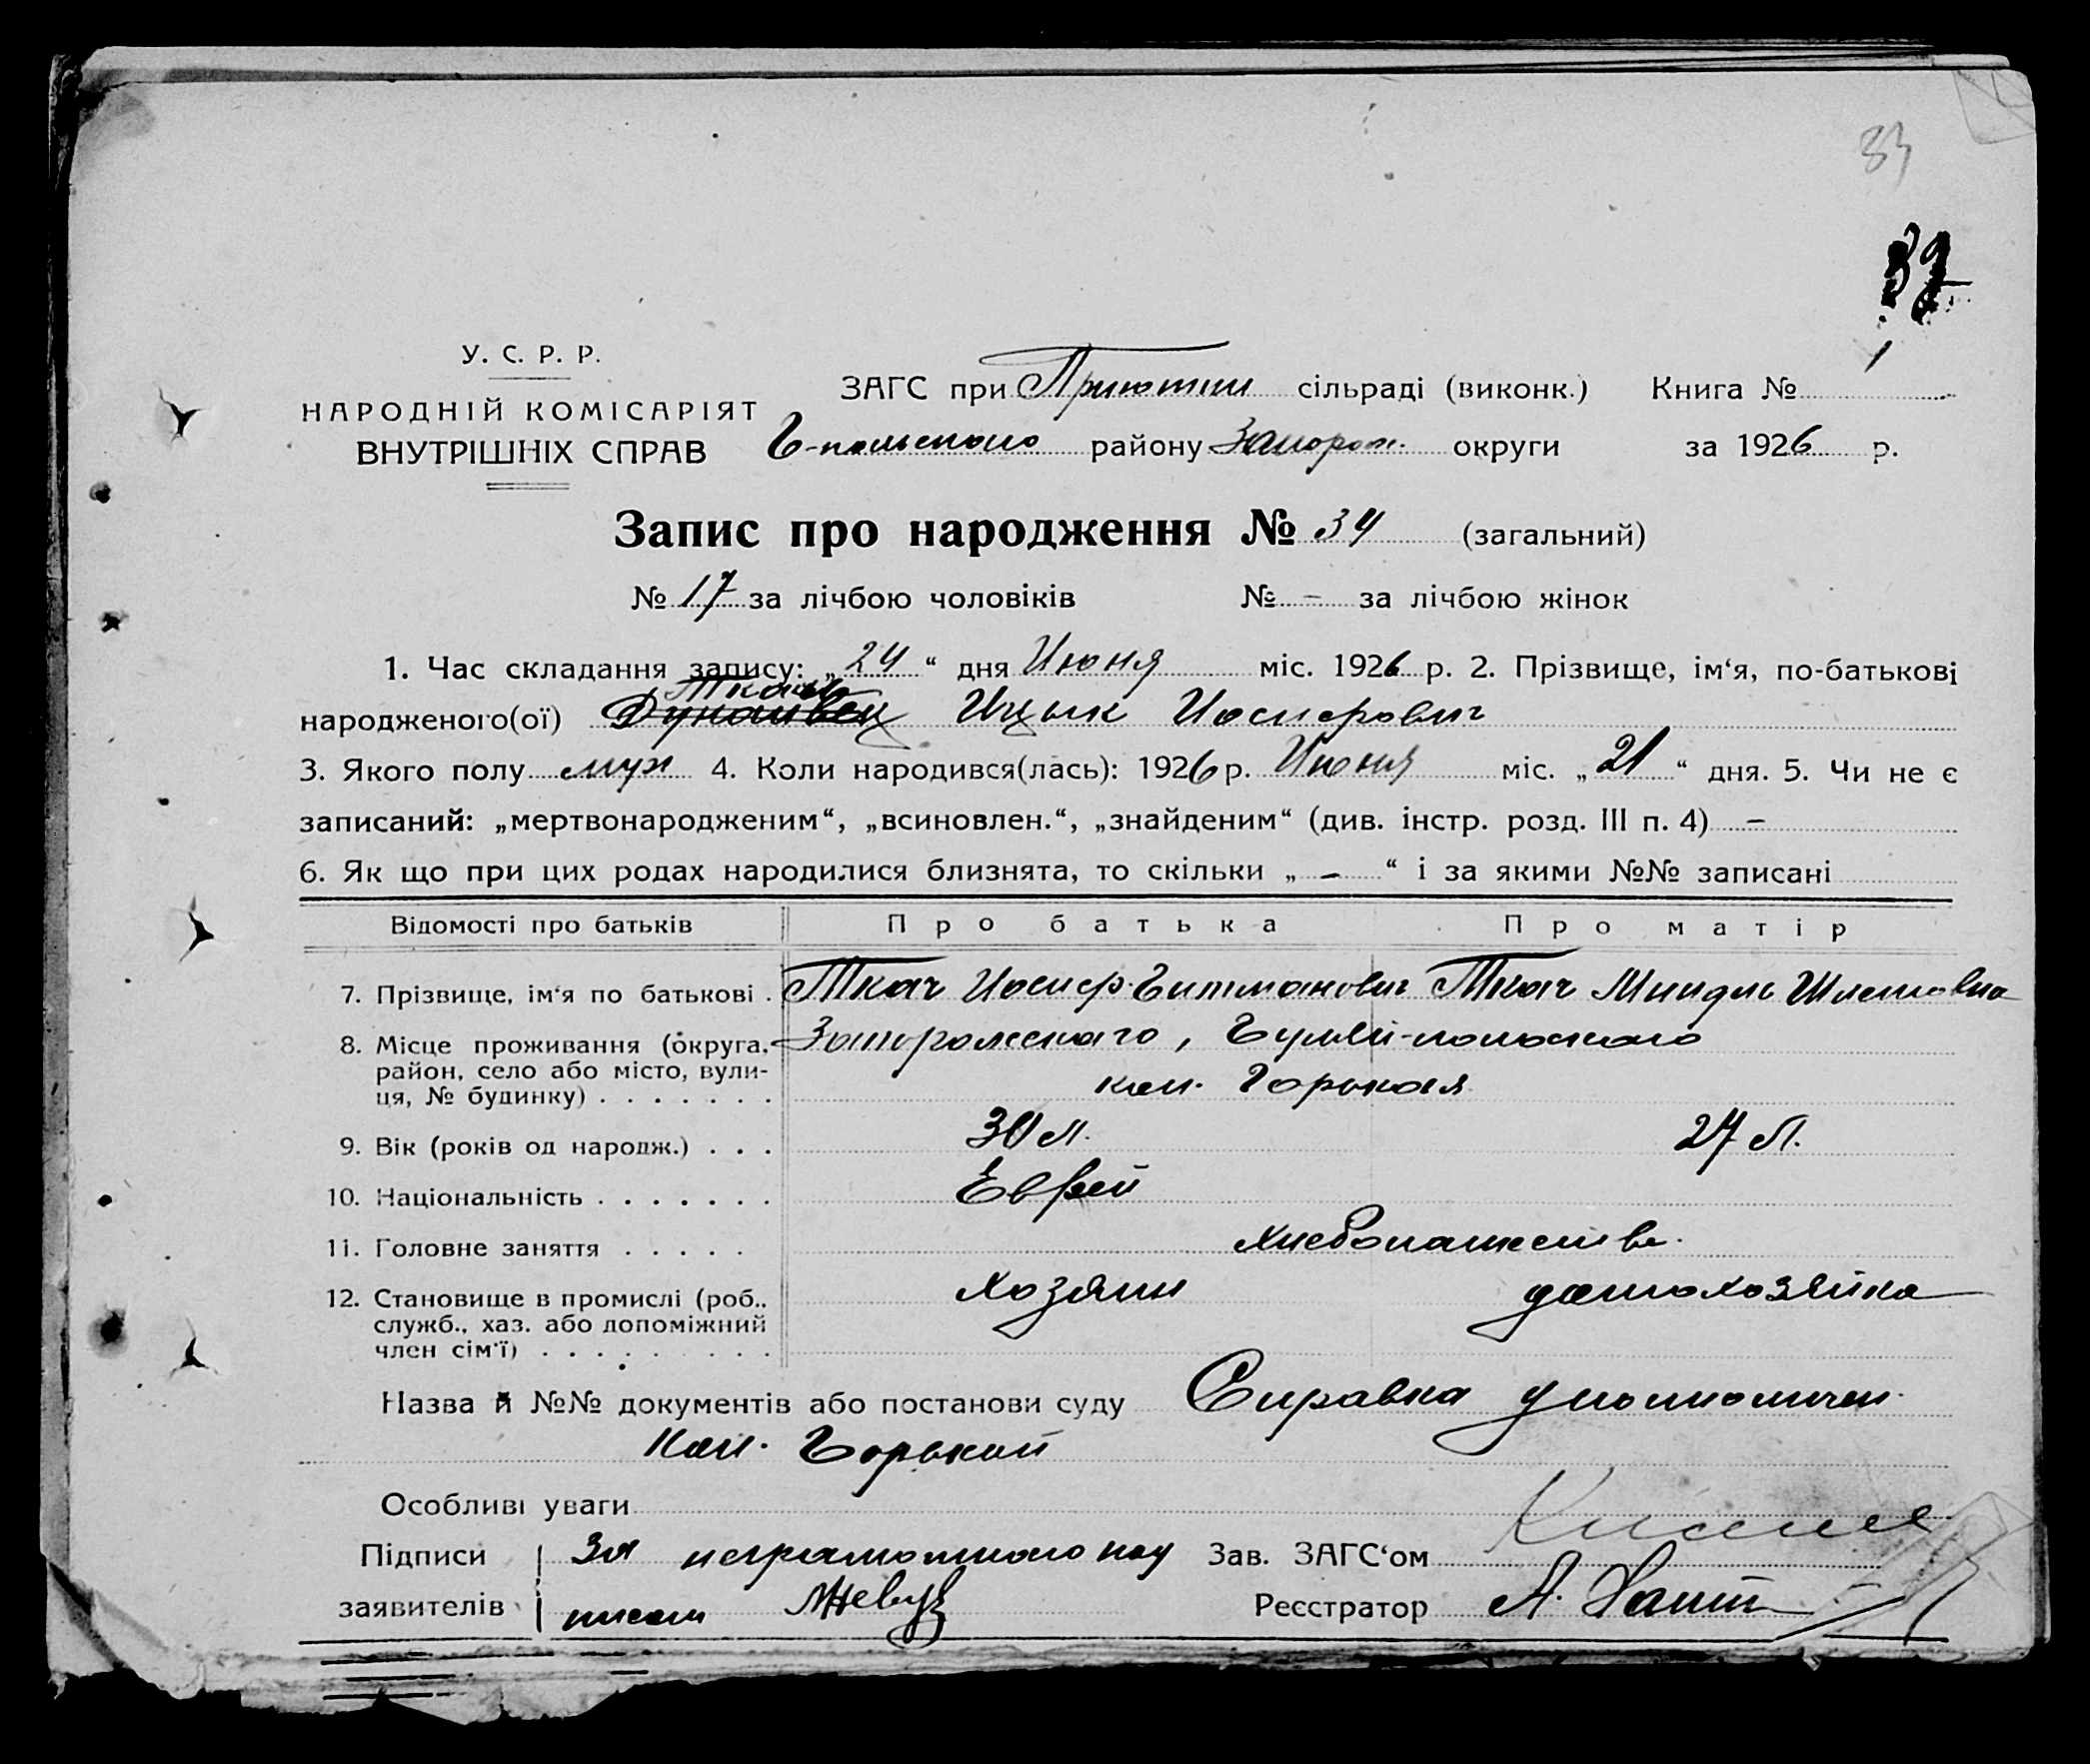 83
У. С. Р. Р.
НАРОДНІЙ КОМІСАРІЯТ
ВНУТРІШНІХ СПРАВ
ЗАГС при Приютин сільраді (виконк.) Книга № 1
Г-польского району Запорож. округи за 1926 р.
Запис про народження № 34 (загальний)
№ 17 за лічбою чоловіків № - за лічбою жінок
1. Час складання запису: „24“ дня Июня міс. 1926 р. 2. Прізвище, ім‘я, по-батькові
Ткач
народженого(ої) Ицык Иосифович
3. Якого полу муж 4. Коли народився(лась): 1926 р. Июня міс. „21“ дня. 5. Чи не є
записаний: „мертвонародженим“, „всиновлен.“, „знайденим“ (див. інстр. розд. III п. 4) -
6. Як що при цих родах народилися близнята, то скільки „ - “ і за якими №№ записані
Відомості про батьків Про батька Про матір
7. Прізвище, ім‘я по батькові . Ткач Иосиф Гитманович Ткач Миндль
8. Місце проживання (округа, Запорожского, Гуляй-польского
район, село або місто, вули-
ця, № будинку) . . . . . . . кол. Горькая
9. Вік (років од народж.) . . . 30 л. 27 л.
10. Національність . . . . . . . Еврей
11. Головне заняття . . . . . хлебопашество
12. Становище в промислі (роб., Хозяин домохозяйка
служб., хаз. або допоміжний
член сім‘ї) . . . . . . . . .
Назва й №№ документів або постанови суду Справка уполномочен.
Кол. Горькой
Особливі уваги
Підписи За неграмотного под Зав. ЗАГС‘ом
заявителів писал Реєстратор А.